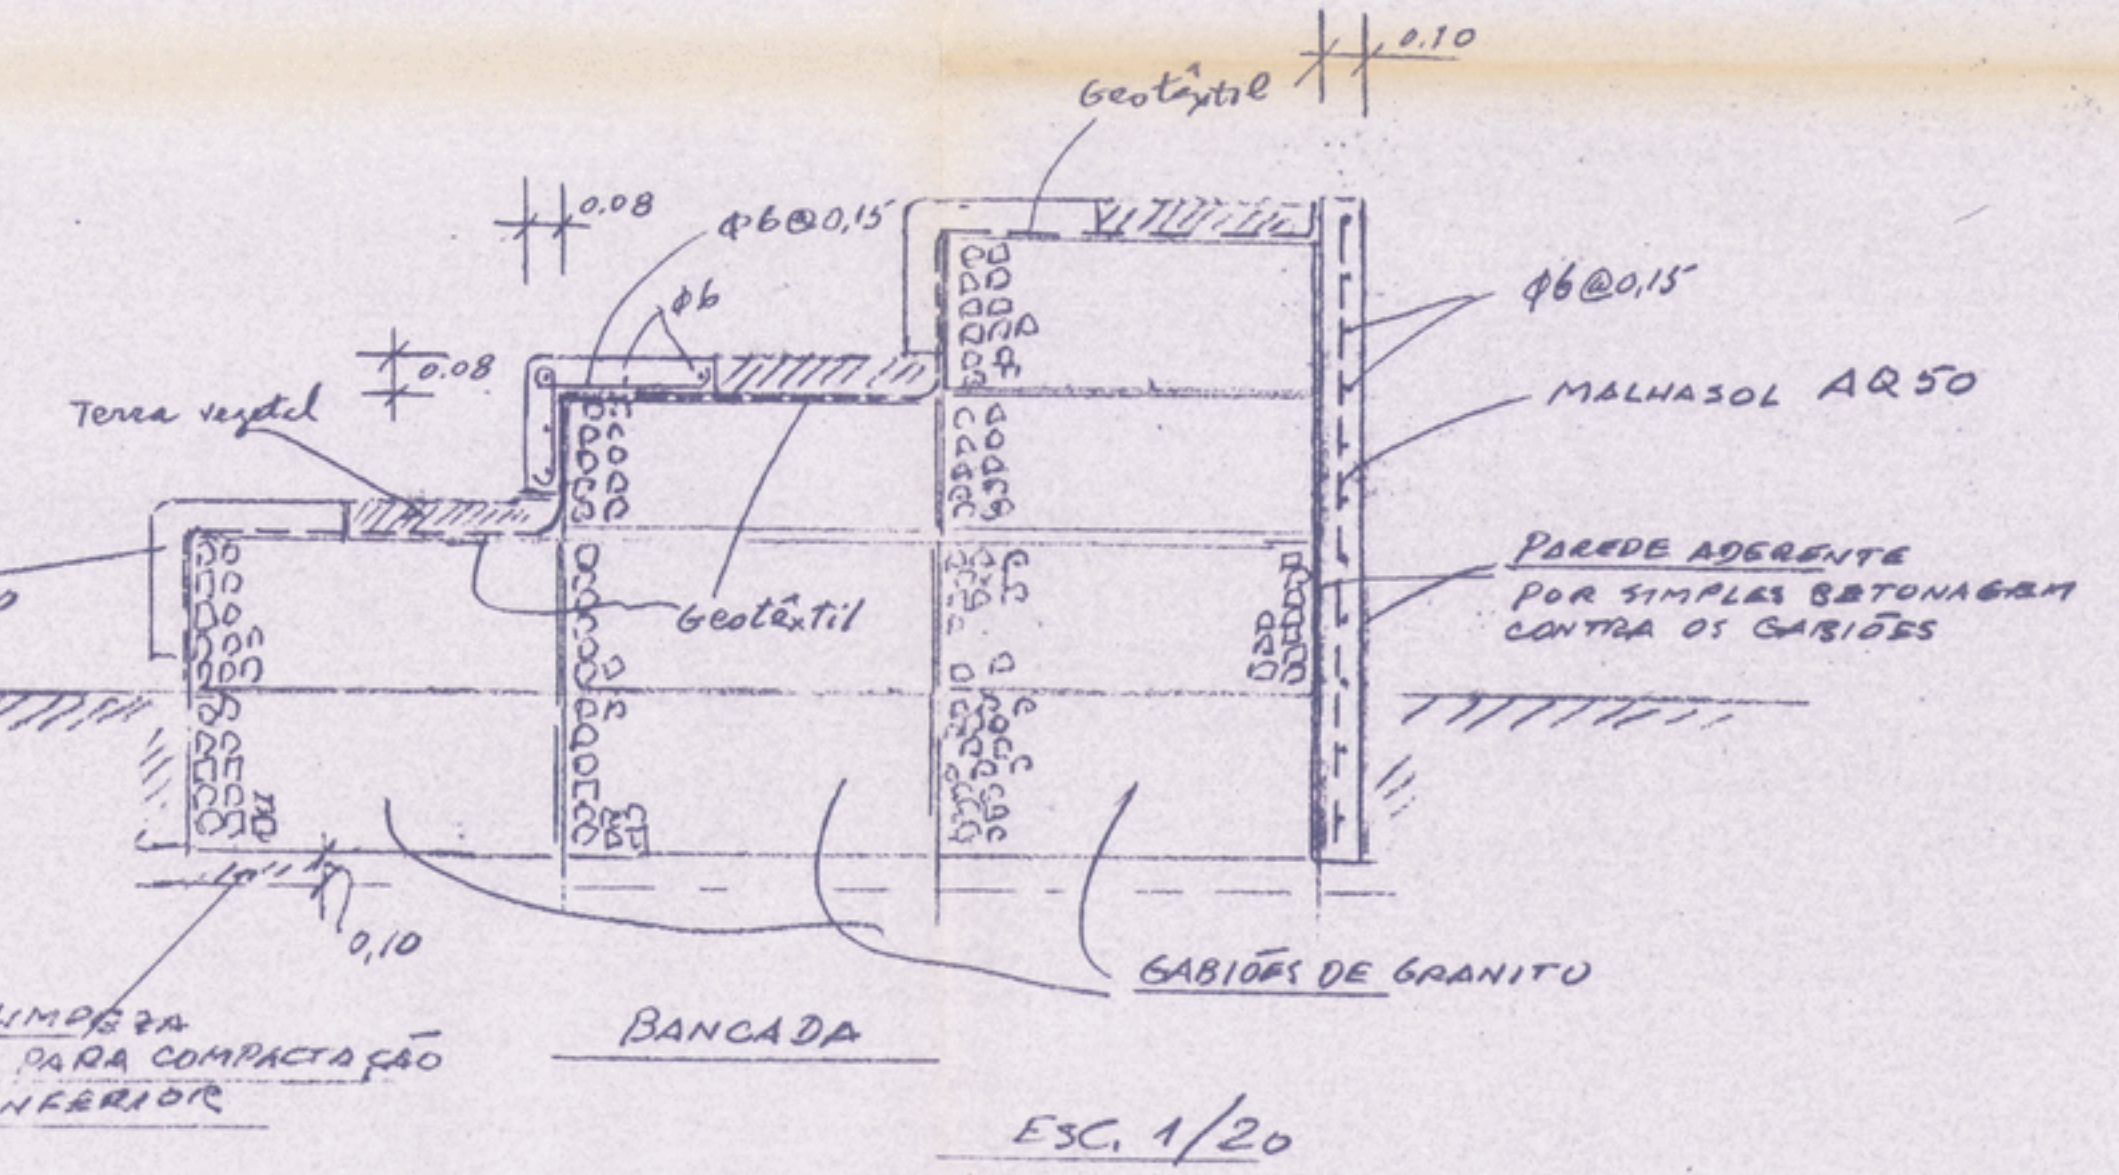 0.10
Geotêxtil
0.08
φ6@0,15
φ6
φ6@0,15
0.08
Terra vegetal
MALHASOL AQ50
PAREDE ADERENTE
POR SIMPLES BETONAGEM
CONTRA OS GABIÕES
Geotêxtil
0,10
GABIÕES DE GRANITO
BANCADA
PARA COMPACTAÇÃO
ESC. 1/20